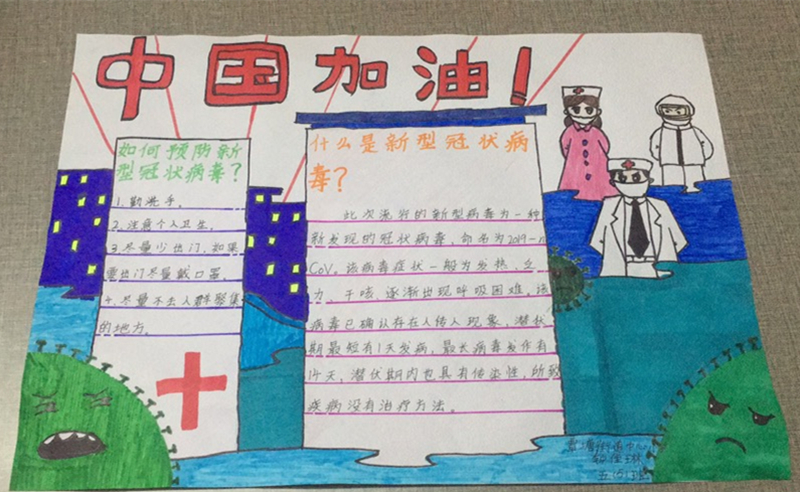 中国加油!
如何预防新
型冠状病毒?
1.勤洗手。
2.注意个人卫生。
3.尽量少出门,如果
要出门尽量戴口罩。
4.尽量不去人群聚集
的地方。
什么是新型冠状病
毒?
此次流行的新型病毒为一种
新发现的冠状病毒,命名为2019-n
CoV。该病毒症状一般为发热、乏
力、干咳、逐渐出现呼吸困难,该
病毒已确认存在人传人现象,潜伏
期最短有1天发病,最长病毒发作有
14天,潜伏期内也具有传染性,所致
疾病没有治疗方法。
中心